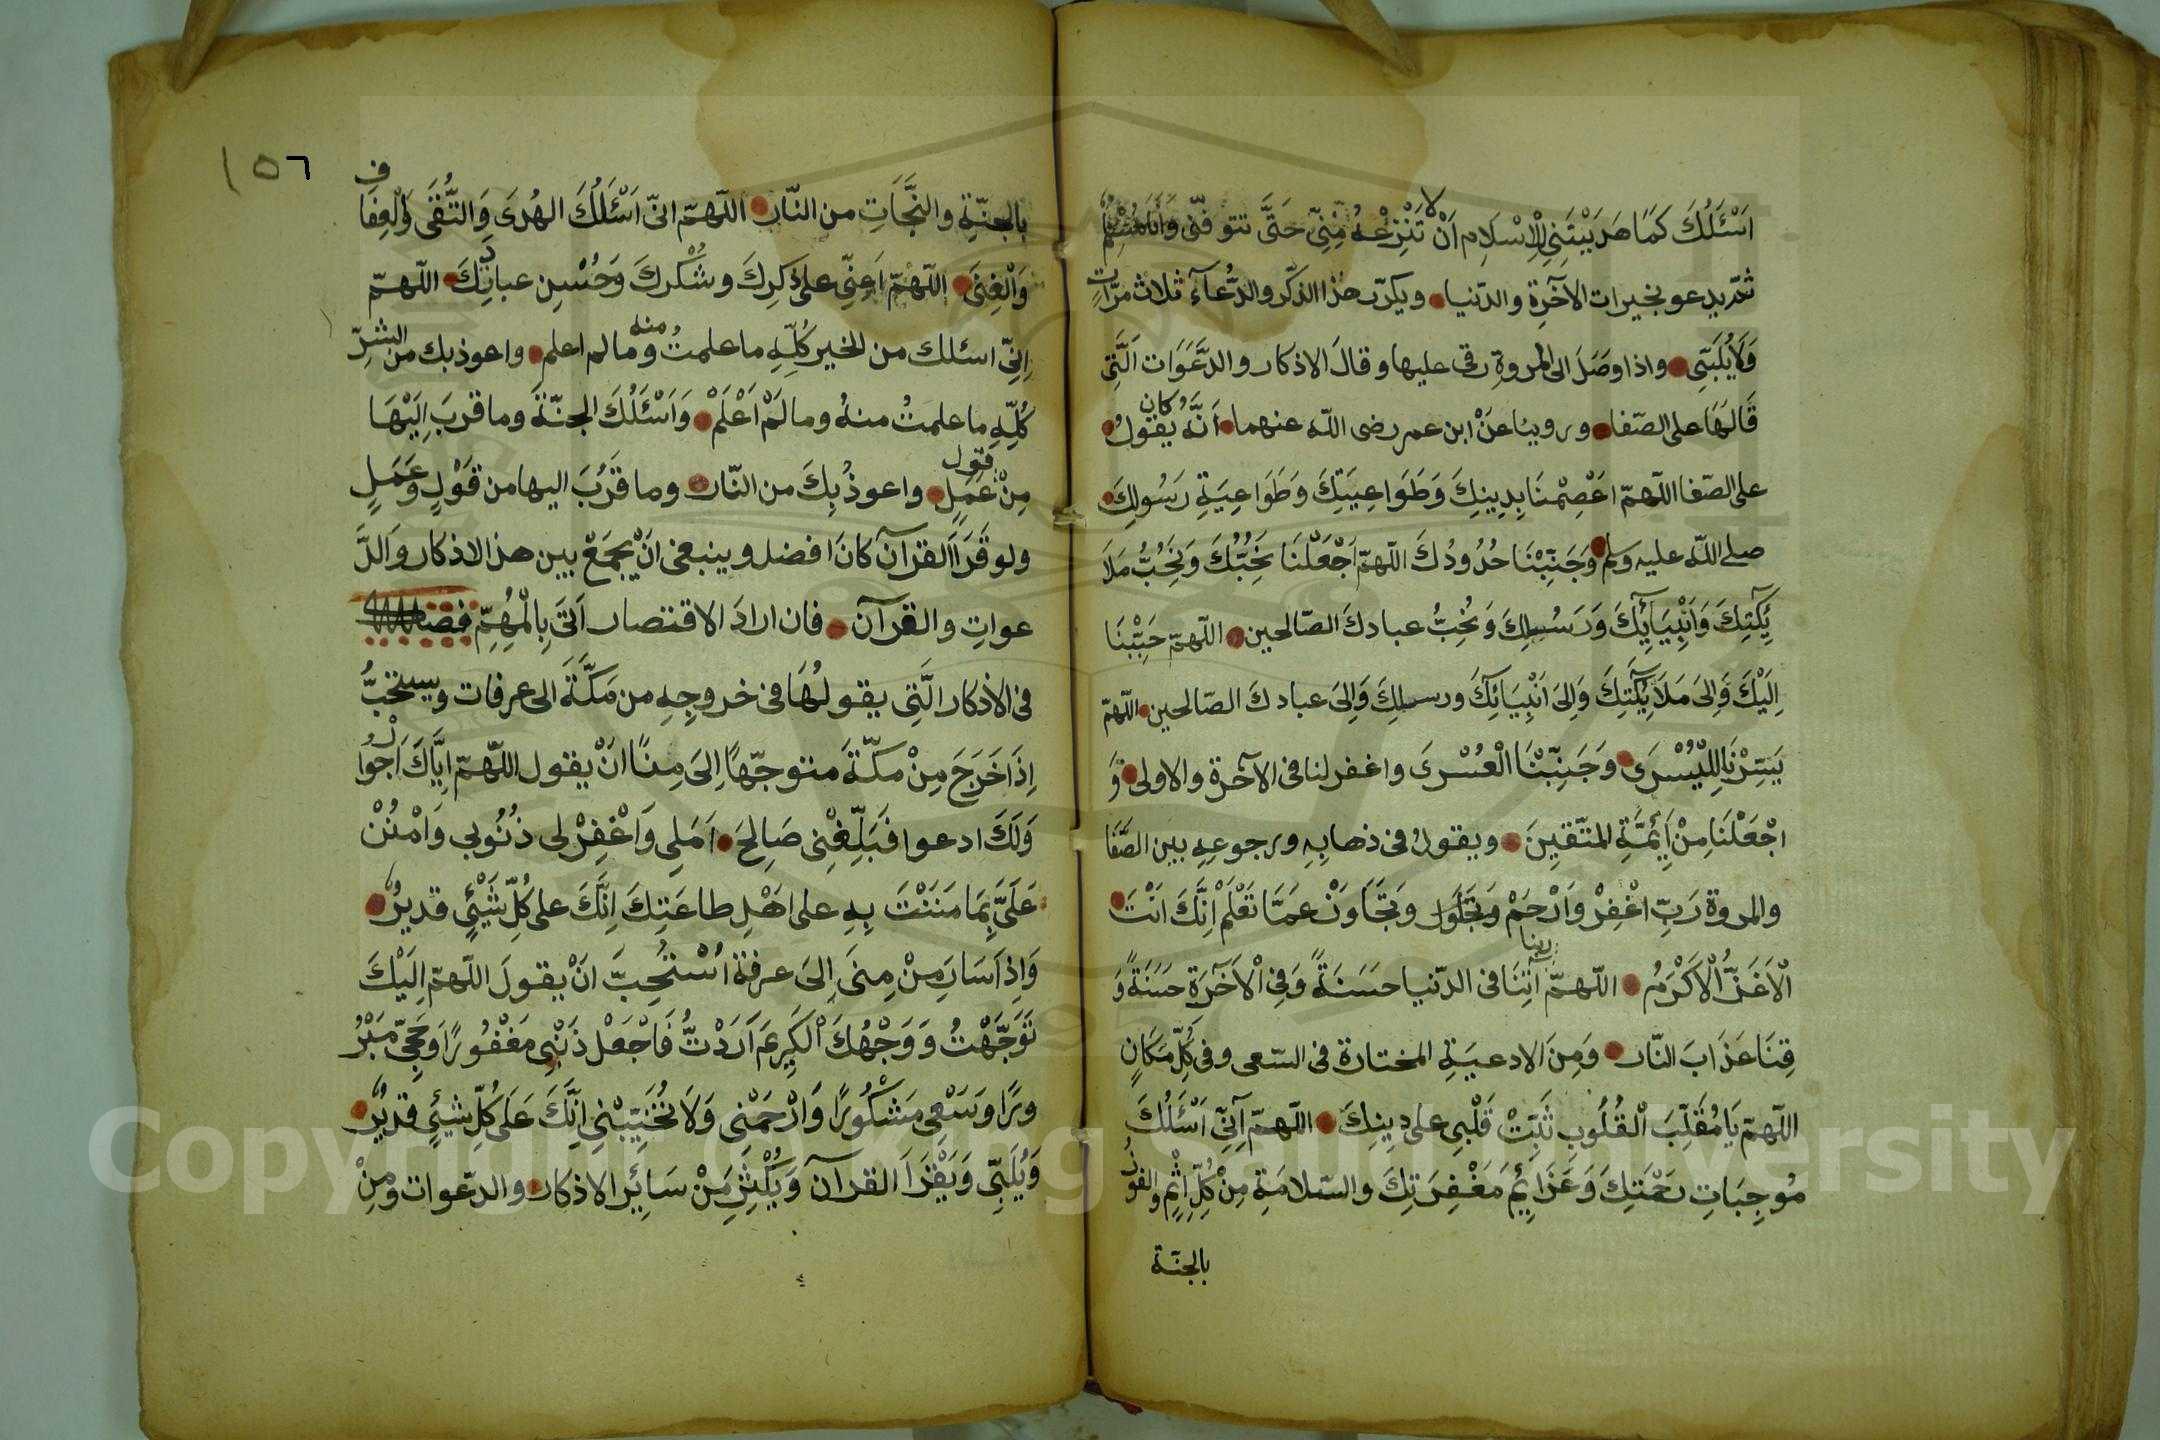 اَسْئَلُكَ كَمَا هَدَيْتَنِي لِلْاِسْلَامِ اَنْ لا تَنْزِعَهُ مِنِّي حَتَّى تتوفّني وَأَنَا مُسْلِمٌ
ثمّ يدعو بخيرات الآخرة والدّنيا ويكرّر هذا الذكر والدُّعآء ثلاث مرّاتٍ
وَلَا يُلَبّي واذا وصَلَ الى المروةِ رقى عليها وقالَ الاذكار والدَّعَوَات الَّتِي
قَالَهَا على الصّفا وروينا عَنْ ابن عمر رضى اللّه عنهما اَنَّهُ كان يقولُ
على الصّفا اللّهمّ اعْصِمْنَا بِدِينِكَ وَطَوَاعِيَتِكَ وَطَوَاعِيَةِ رَسُولِكَ
صلى اللّه عليه وسلم وَجَنِّبْنَا حُدُودُكَ اللّهمّ اَجْعَلْنَا نُحِبُّكَ وَنُحِبُّ مَلَا
ئِكَتِكَ وَاَنْبِيَآئِكَ وَرَسُلِكَ وَنُحِبُّ عبادكَ الصّالحين اللّهمّ حَبِّبْنَا
اِلَيْكَ وَاِلىَ مَلَائِكَتِكَ وَاِلىَ اَنْبِيَائِكَ ورسلِكَ وَاِلىَ عبادكَ الصّالحين اللّهمّ
يَسِّرْنَا لِلْيُسْرَى وَجَنِّبْنَا الْعُسْرَى واغفر لنا فى الآخرة والاولى وَ
اجْعَلْنَا مِنْ اَئِمَّةِ المتّقينَ ويقولُ فى ذهابِهِ ورجوعِهِ بين الصّفَا
والمروة رَبِّ اغْفِرْ وَارْحَمْ وَتَجَاوَزْ عَمَّا تَعْلَمْ اِنَّكَ اَنْتَ
الْاَعَزُّ الْاَكْرَمُ اللّهمّ ربنا اٰتِنَا فى الدّنيا حَسَنَةً وَفِى الْاَخَرَةِ حَسَنَةً وَ
قِنَا عَذَابَ النّار وَمِنَ الادعيَةِ المختارة فى السّعى وفى كلِّ مَكَانٍ
اللّهمّ يَا مُقَلِّبَ الْقُلُوبِ ثَبِّتْ قَلْبِي على دِينِكَ اللّهمّ اِنِّى اَسْئَلُكَ
مُوجِبَاتِ رَحْمَتِكَ وَعَزَائِمَ مَغْفِرَتِكَ والسّلامَةِ مِنْ كُلِّ اِثْمٍ والفوز
بالجنّة
١٥٦
بالجنّةِ والنَّجَاتِ من النّار اللّهمّ انّى اَسْئَلُكَ الهُدَى وَالتُّقَى وَالْعِفَاف
وَالْغِنَى اللّهُمَّ اَعِنِّى على ذكرِكَ وشُكْرِكَ وَحُسْنِ عبادتِكَ اللّهمّ
اِنِّى اسئلك من الخير كُلِّهِ ما علمتُ منه وما لم اعلم واعوذ بك من الشرِّ
كُلِّهِ ما علمتُ منهُ وما لَمْ اَعْلَمْ وَاَسْئَلُكَ الجنّةَ وما قرّبَ اِلَيْهَا
مِنْ قول عَمَلٍ واعوذُ بِكَ من النّار وما قَرّبَ اليها من قَوْلٍ وَعَمَلٍ
ولو قَرَاَ القرآنَ كانَ افضل وينبغى انْ يجمَعْ بين هذا الاذكار والدَّ
عواتِ والقرآن فان ارادَ الاقتصار اَتَى بِالْمُهِمِّ فصل
فى الاذكار الَّتِى يقولُهَا فى خروجِهِ من مَكَّةَ الى عرفات ويستحَبُّ
اِذَا خَرَجَ مِنْ مكّةَ متوجّهًا اِلىَ مِنًا انْ يقول اللّهمّ اِيَّاكَ اَرْجُوا
وَلَكَ ادعوا فَبَلِّغْنِى صَالِحَ اَمَلِي وَاغْفِرْ لى ذُنُوبى وَامْنُنْ
عَلَىَّ بِمَا مَنَنْتَ بِهِ على اهْلِ طاعَتِكَ اِنَّكَ على كُلِّ شَيْئٍ قديرٌ
وَاِذَا سَارَ مِنْ مِنىَ اِلىَ عرفةَ اُسْتُحِبَّ انْ يقولَ اللّهمّ اِلَيْكَ
تَوَجَّهْتُ وَوَجْهُكَ الْكَرِيمَ اَرَدْتُ فَاجْعَلْ ذَنْبِى مَغْفُورًا وَحَجِّى مَبْرُ
ورًا وسَعْيِى مَشْكُورًا وَارْحَمْنِى وَلَا تُخَيِّبْنِي اِنَّكَ عَلَى كُلِّ شيْئٍ قديرٌ
وَيُلَبِّى وَيَقْرَاَ القرآنَ وَيُكْثِرُ مِنْ سَائِرِ الاذكار والدّعوات ومِنْ
Copyright © King Saud University